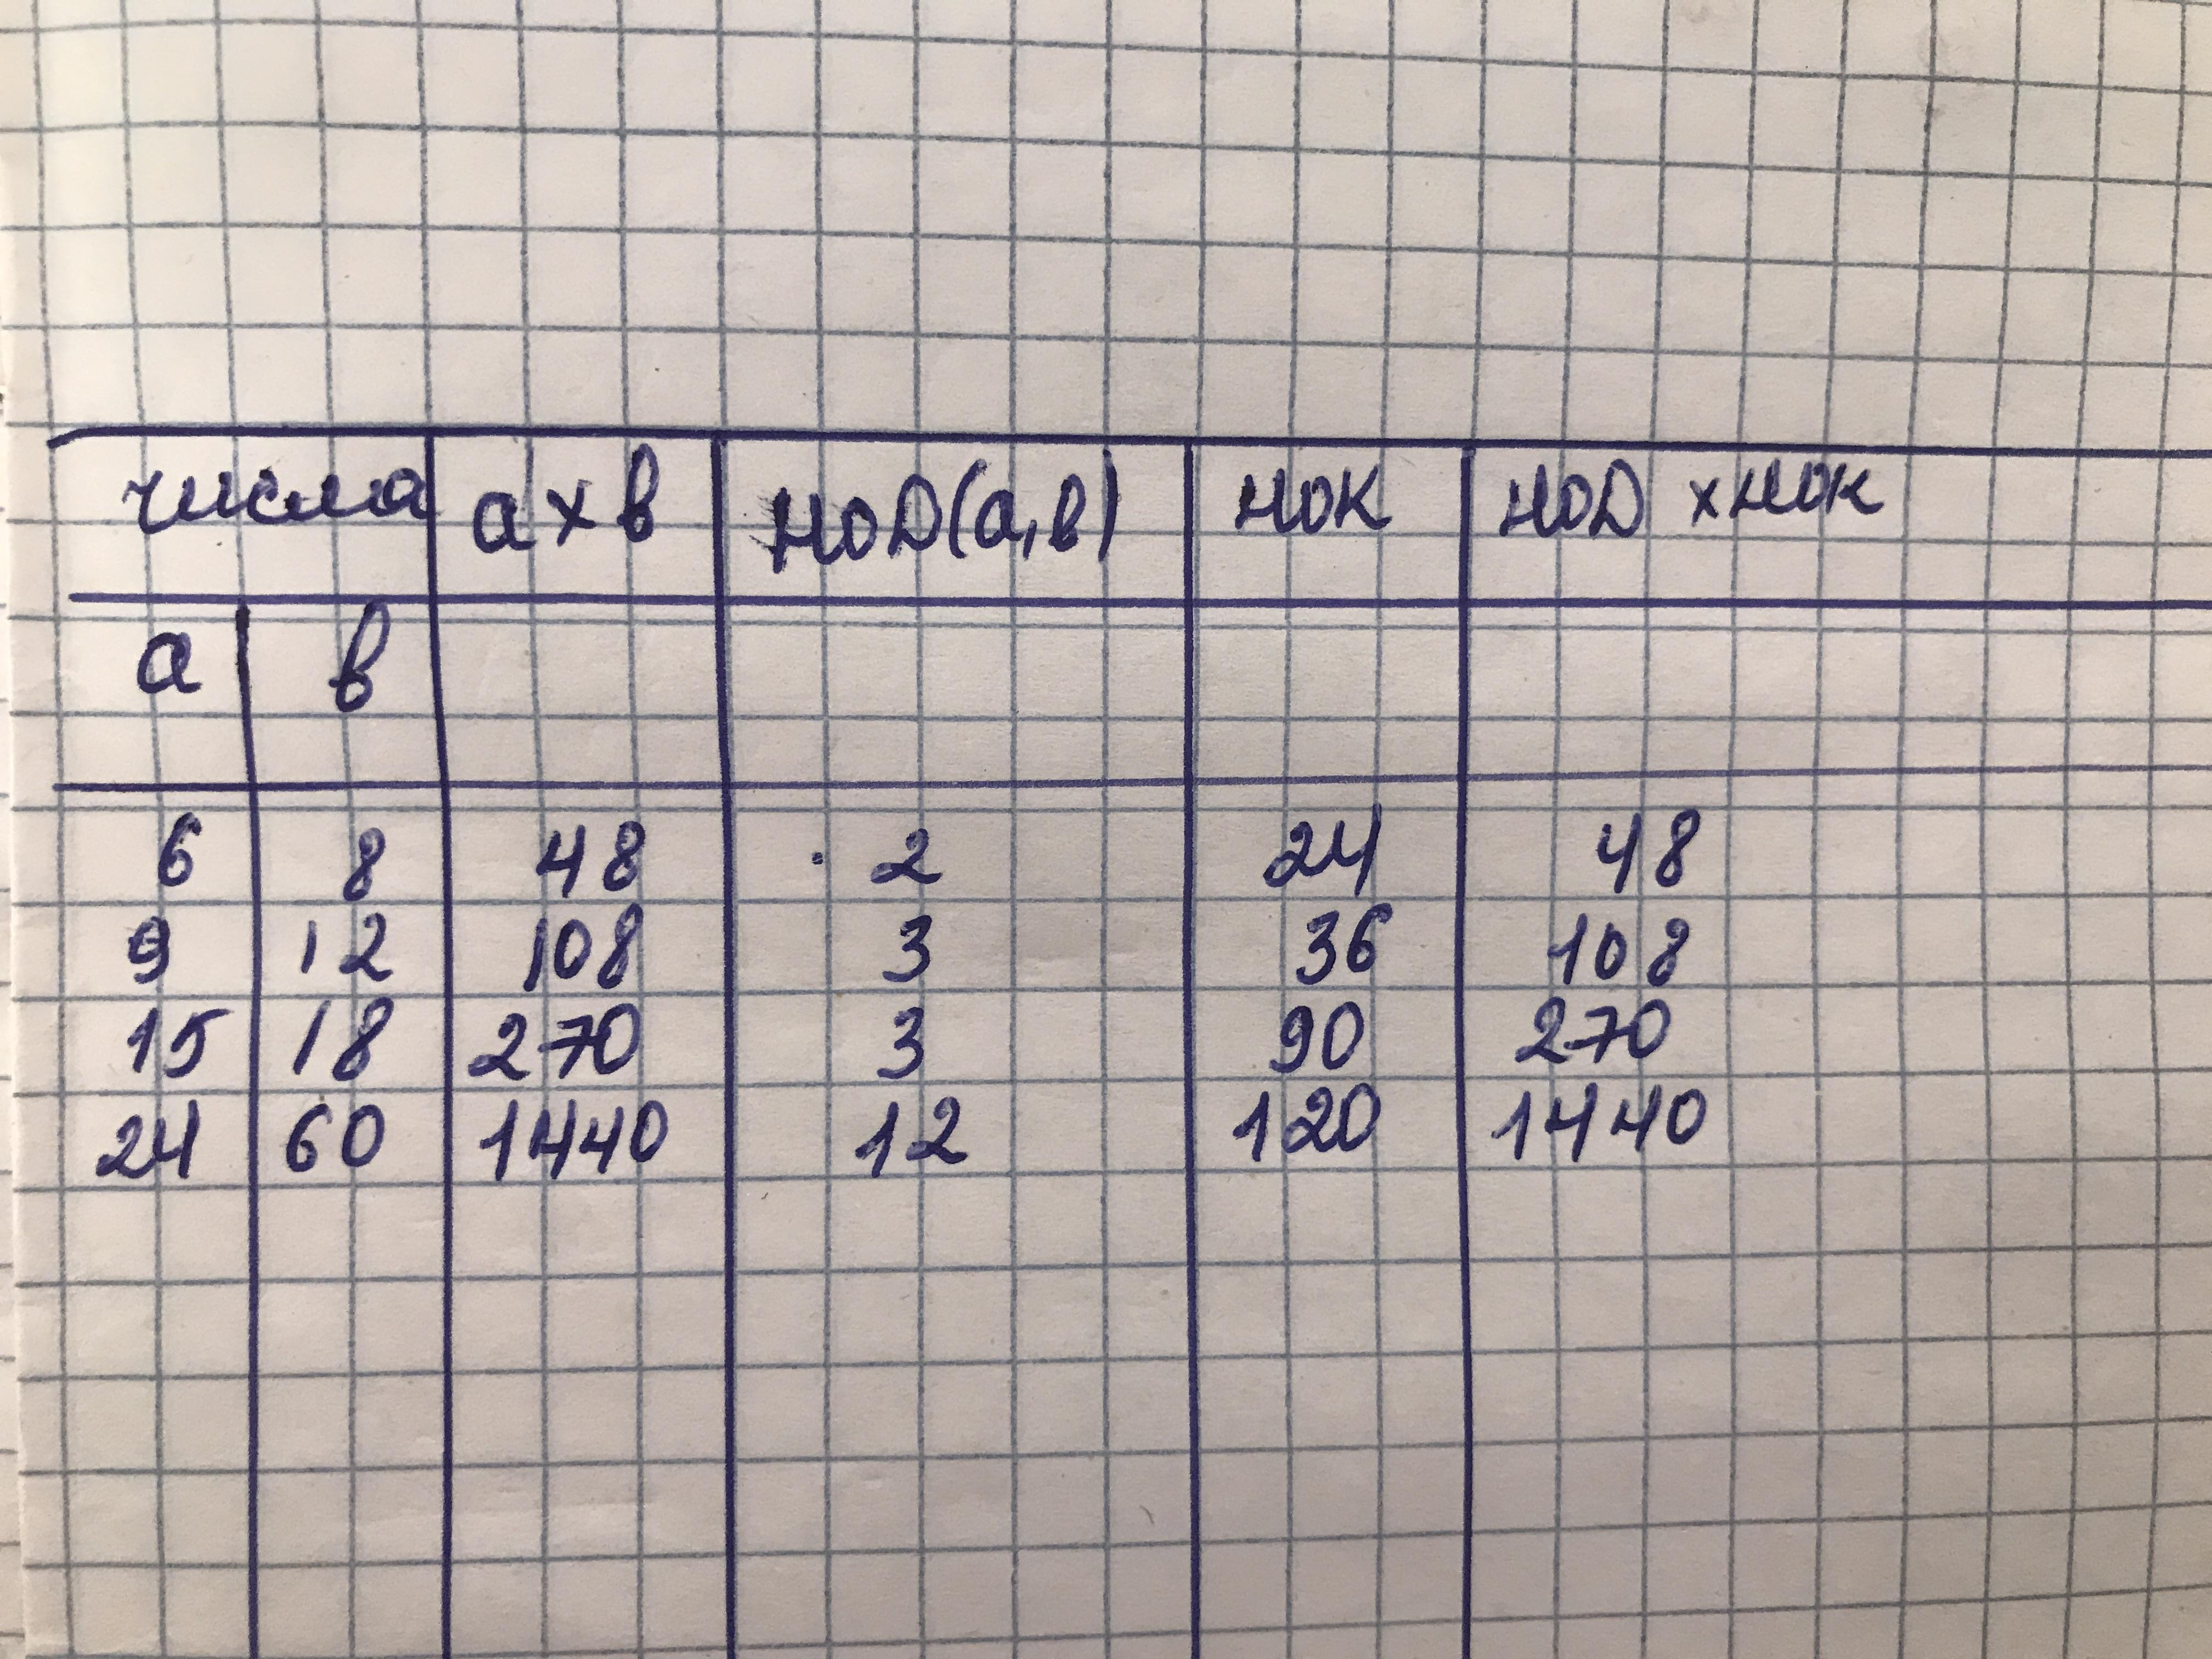 числа а х в НОД(а,в) НОК НОД х НОК
а в
6 8 48 2 24 48
9 12 108 3 36 108
15 18 270 3 90 270
24 60 1440 12 120 1440